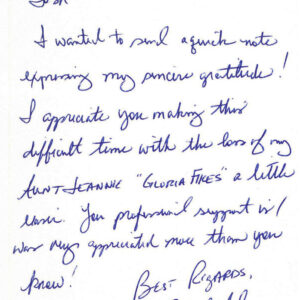 I wanted to send a quick note
expressing my sincere gratitude!
I appreciate you making this
difficult time with the loss of my
AUNT JEANNIE "GLORIA FIKES" a little
easier. You professional support is/
was very appreciated more than you
know!
BEST REGARDS,